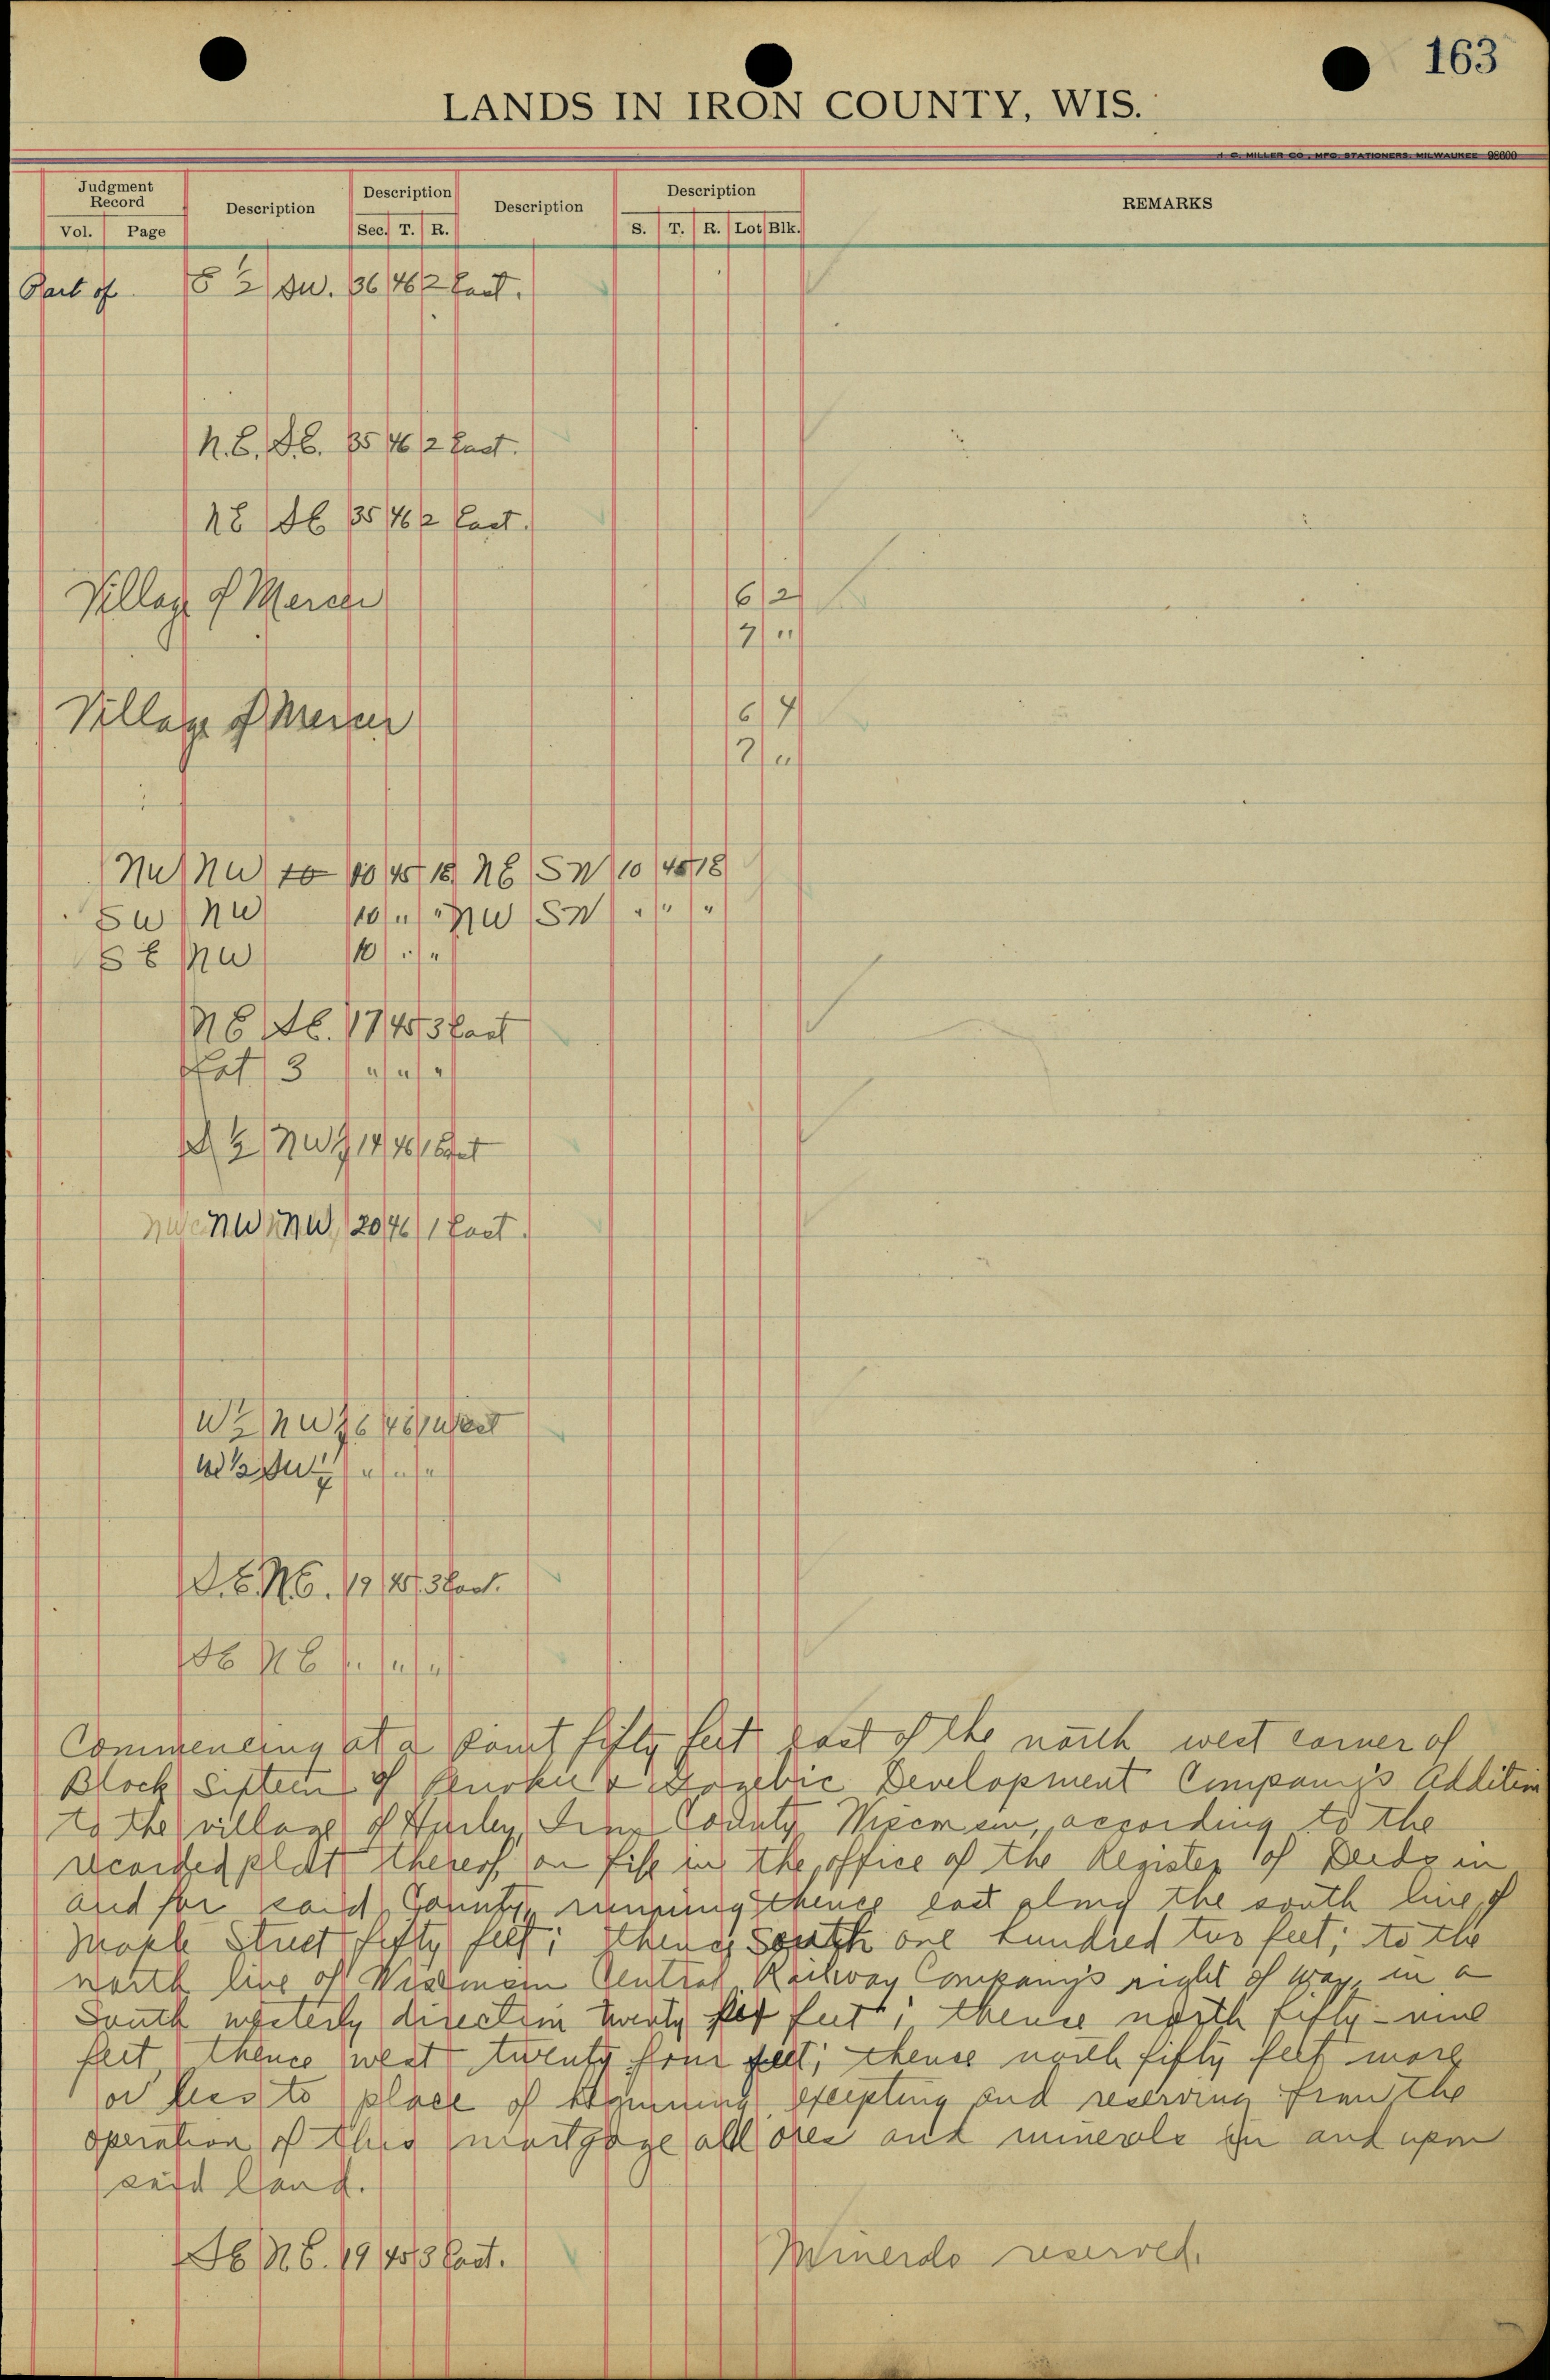 163
LANDS IN IRON COUNTY, WIS.
H. C. MILLER CO., MFG. STATIONERS, MILWAUKEE 98600
Judgment Record Description Description Description Description REMARKS
Vol. Page Sec. T. R. S. T. R. Lot Blk.
Part of S ½ SW. 36 46 2 East.
N.E. S.E. 35 46 2 East.
NE SE 35 46 2 East.
Village of Mercer 6 2
7 "
Village of Mercer 6 4
7 "
NW NW 10 45 18 NE SW 10 45 18
SW NW 10 " " NW SW " " "
SE NW 10 " "
NE SE. 17 45 3 East
Lot 3 " " "
½ NW ¼ 14 46 1 East
NW NW 20 46 1 East.
W ½ NW ¼ 6 46 1 West
W ½ SW ¼ " " "
S.E. N.E. 19 45 3 East.
SE NE " " "
Commencing at a point fifty feet east of the north west corner of
Block Sixteen of Penokee & Gogebic Development Company's Addition
to the village of Hurley, Iron County Wisconsin, according to the
recorded plat thereof, on file in the office of the Register of Deeds in
and for said County, running thence east along the south line of
Maple Street fifty feet; thence South one hundred two feet; to the
north line of Wisconsin Central Railway Company's right of way, in a
South westerly direction twenty feet; thence north fifty-nine
feet, thence west twenty four feet; thence north fifty feet more
or less to place of beginning, excepting and reserving from the
operation of this mortgage all ores and minerals in and upon
said land.
SE NE. 19 45 3 East. Minerals reserved.